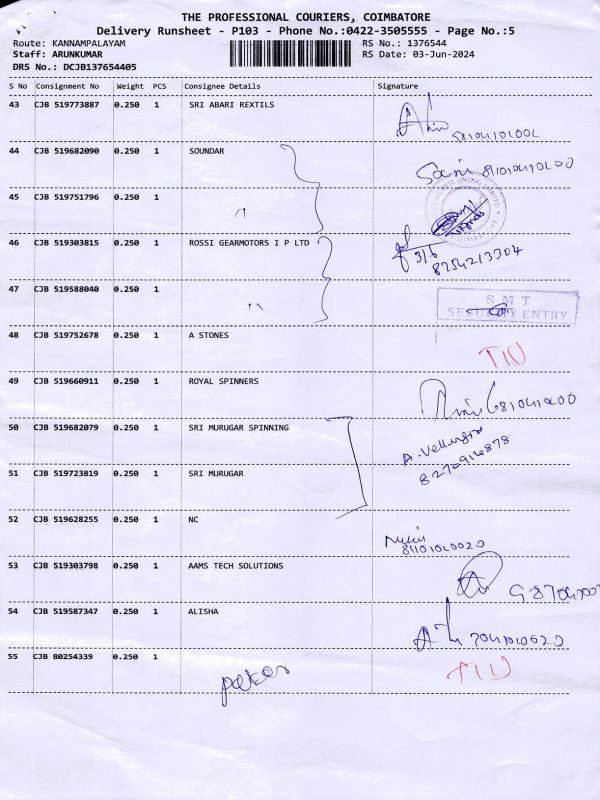 THE PROFESSIONAL COURIERS, COIMBATORE
Delivery Runsheet - P103 - Phone No.:0422-3505555 - Page No.:5
Route: KANNAMPALAYAM RS No.: 1376544
Staff: ARUNKUMAR RS Date: 03-Jun-2024
DRS No.: DCJB137654405
S No Consignment No Weight PCS Consignee Details Signature
43 CJB 519773887 0.250 1 SRI ABARI REXTILS
44 CJB 519682090 0.250 1 SOUNDAR
45 CJB 519751796 0.250 1 "
46 CJB 519303815 0.250 1 ROSSI GEARMOTORS I P LTD
3/6
8754213304
47 CJB 519588040 0.250 1 "
SMT
SECURITY ENTRY
48 CJB 519752678 0.250 1 A STONES
49 CJB 519660911 0.250 1 ROYAL SPINNERS
50 CJB 519682079 0.250 1 SRI MURUGAR SPINNING
51 CJB 519723819 0.250 1 SRI MURUGAR
52 CJB 519628255 0.250 1 NC
53 CJB 519303798 0.250 1 AAMS TECH SOLUTIONS
54 CJB 519587347 0.250 1 ALISHA
55 CJB 80254339 0.250 1